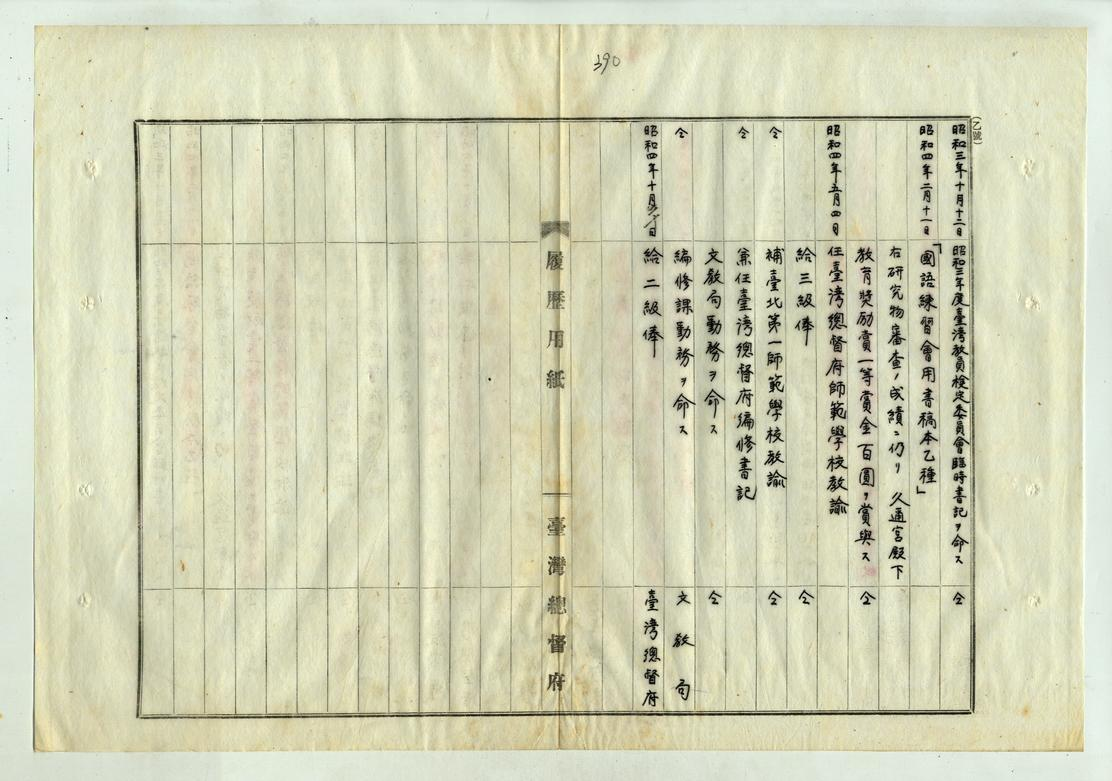 390
(乙號)
昭和三年十月十二日 昭和三年度臺灣教員檢定委員會臨時書記ヲ命ス 仝
昭和四年二月十一日 「國語練習會用書稿本乙種」
右研究物審査ノ成績ニ仍リ 久邇宮殿下
教育奬励賞一等賞金百圓ヲ賞與ス 仝
昭和四年五月四日 任臺灣總督府師範學校教諭
給三級俸 仝
仝 補臺北第一師範學校教諭 仝
仝 兼任臺灣總督府編修書記
文教局勤務ヲ命ス 仝
仝 編修課勤務ヲ命ス 文教局
昭和四年十月 日 給二級俸 臺灣總督府
履歷用紙
臺灣總督府